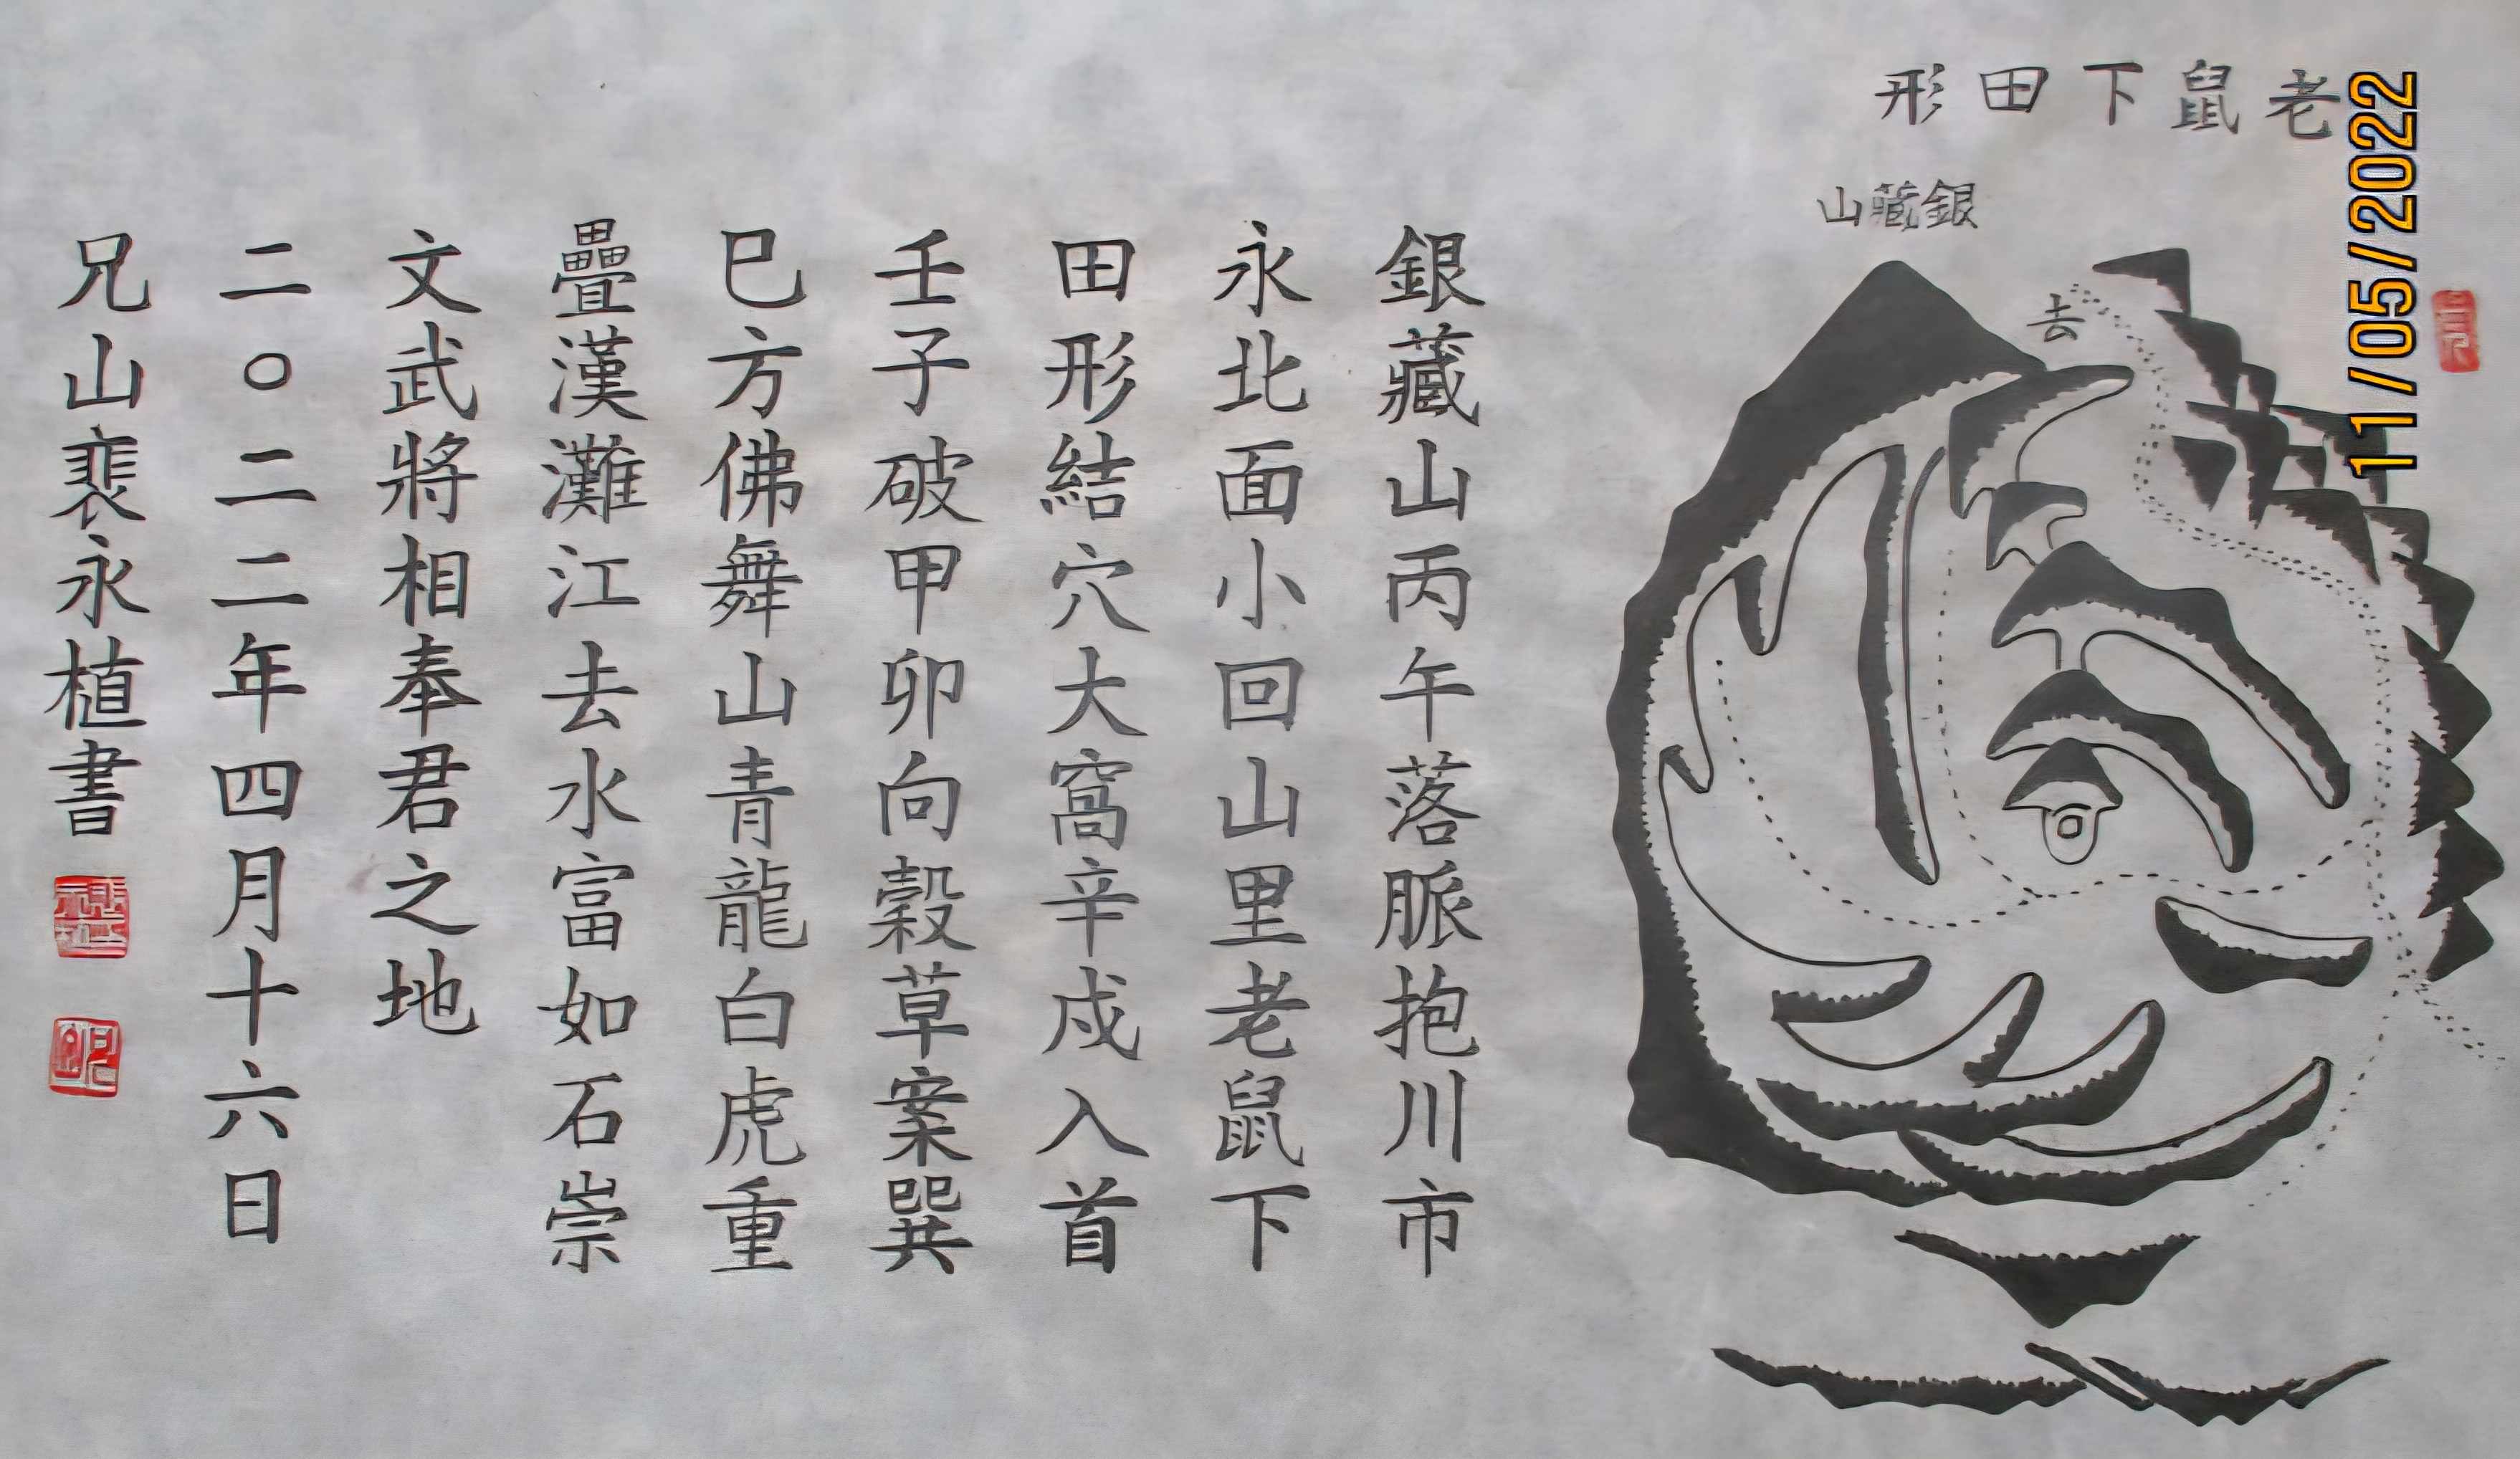 老鼠下田形
銀藏山
去
銀藏山丙午落脈抱川市
永北面小回山里老鼠下
田形結穴大窩辛戌入首
壬子破甲卯向穀草案巽
巳方佛舞山青龍白虎重
疊漢灘江去水富如石崇
文武將相奉君之地
二〇二二年四月十六日
兄山裵永植書
11/05/2022